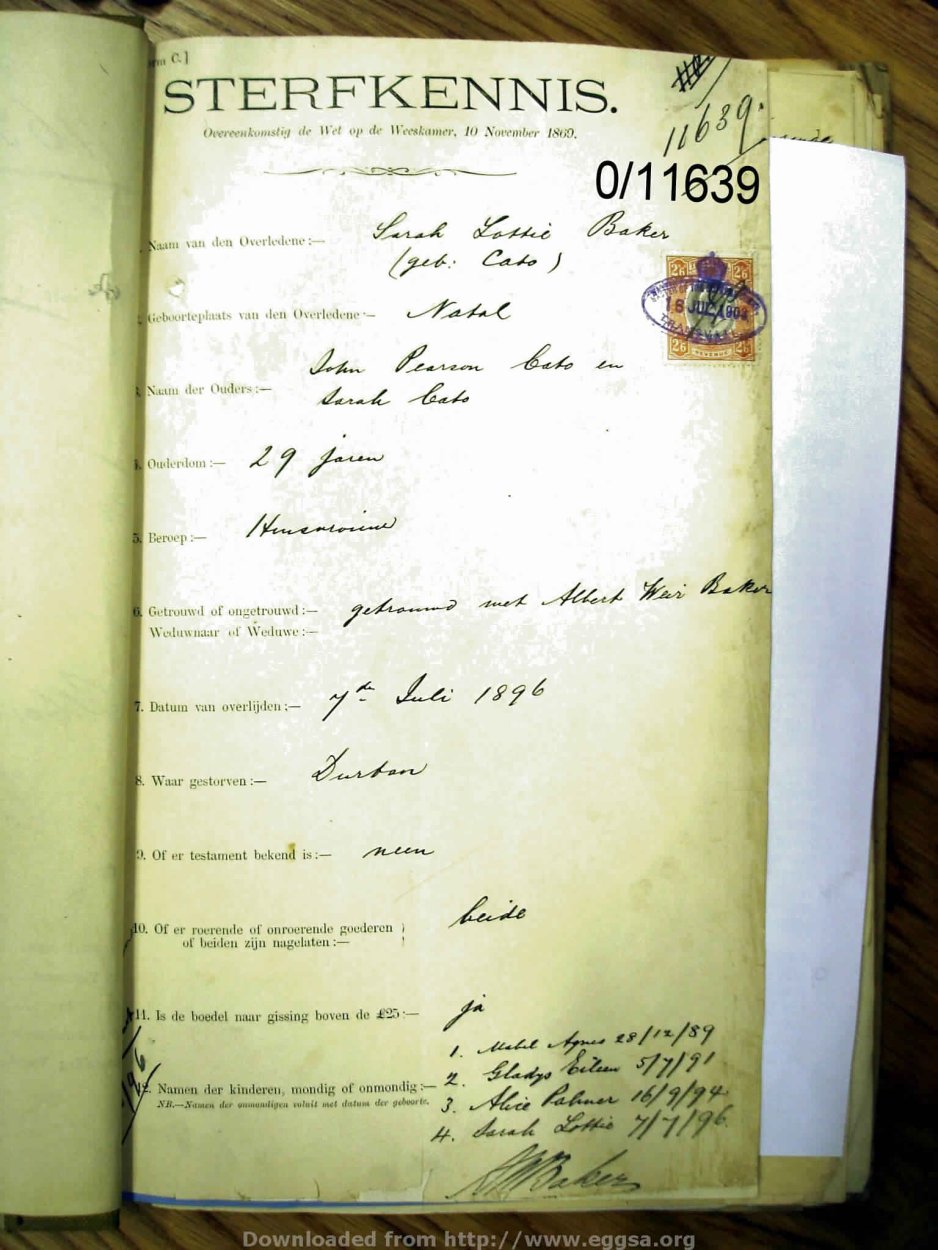 C.]
STERFKENNIS.
Overeenkomstig de Wet op de Weeskamer, 10 November 1869.
11639.
0/11639
Naam van den Overledene:— Sarah Lottie Baker
(geb: Cato)
Geboorteplaats van den Overledene— Natal
26 26
16 JUL 1903
TRANSVAAL
26 REVENUE 26
John Pearson Cato en
Naam der Ouders:— Sarah Cato
Ouderdom:— 29 jaren
5. Beroep:— Huisvrouw
6. Getrouwd of ongetrouwd:— getrouwd met Albert Weir Baker
Weduwnaar of Weduwe:—
7. Datum van overlijden:— 7de Juli 1896
8. Waar gestorven:— Durban
9. Of er testament bekend is:— neen
10. Of er roerende of onroerende goederen beide
of beiden zijn nagelaten:—
11. Is de boedel naar gissing boven de £25:— ja
1. Mabel Agnes 28/12/89
12. Namen der kinderen, mondig of onmondig:— 2. Gladys Eileen 5/7/91
NB.—Namen der onmondigen voluit met datum der geboorte. 3. Alice Palmer 16/9/94
4. Sarah Lottie 7/7/96
AWBaker
Downloaded from http://www.eggsa.org